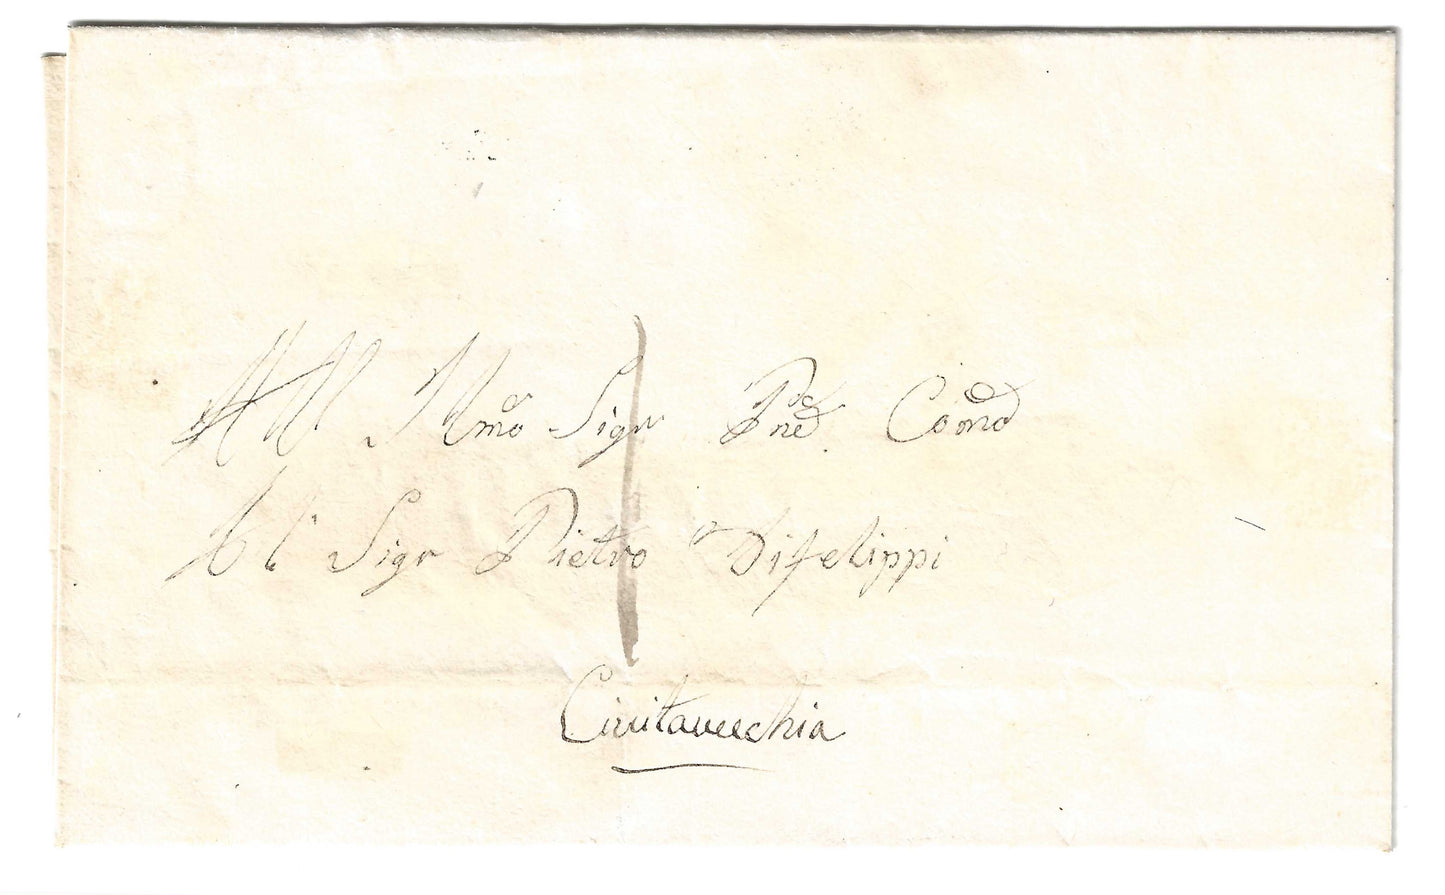 All Illmo Sigr Pne Comd
Il Sigr Pietro Difelippi
Civitavecchia